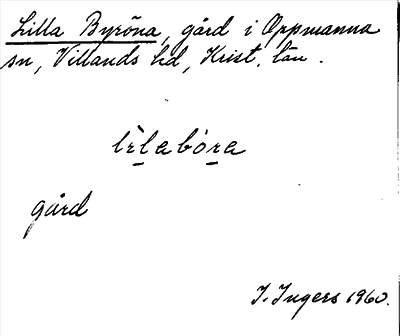 Lilla Byröna, gård i Oppmanna
sn, Villands hd, Krist. län.
lèlabóra
gård
I. Ingers 1960.